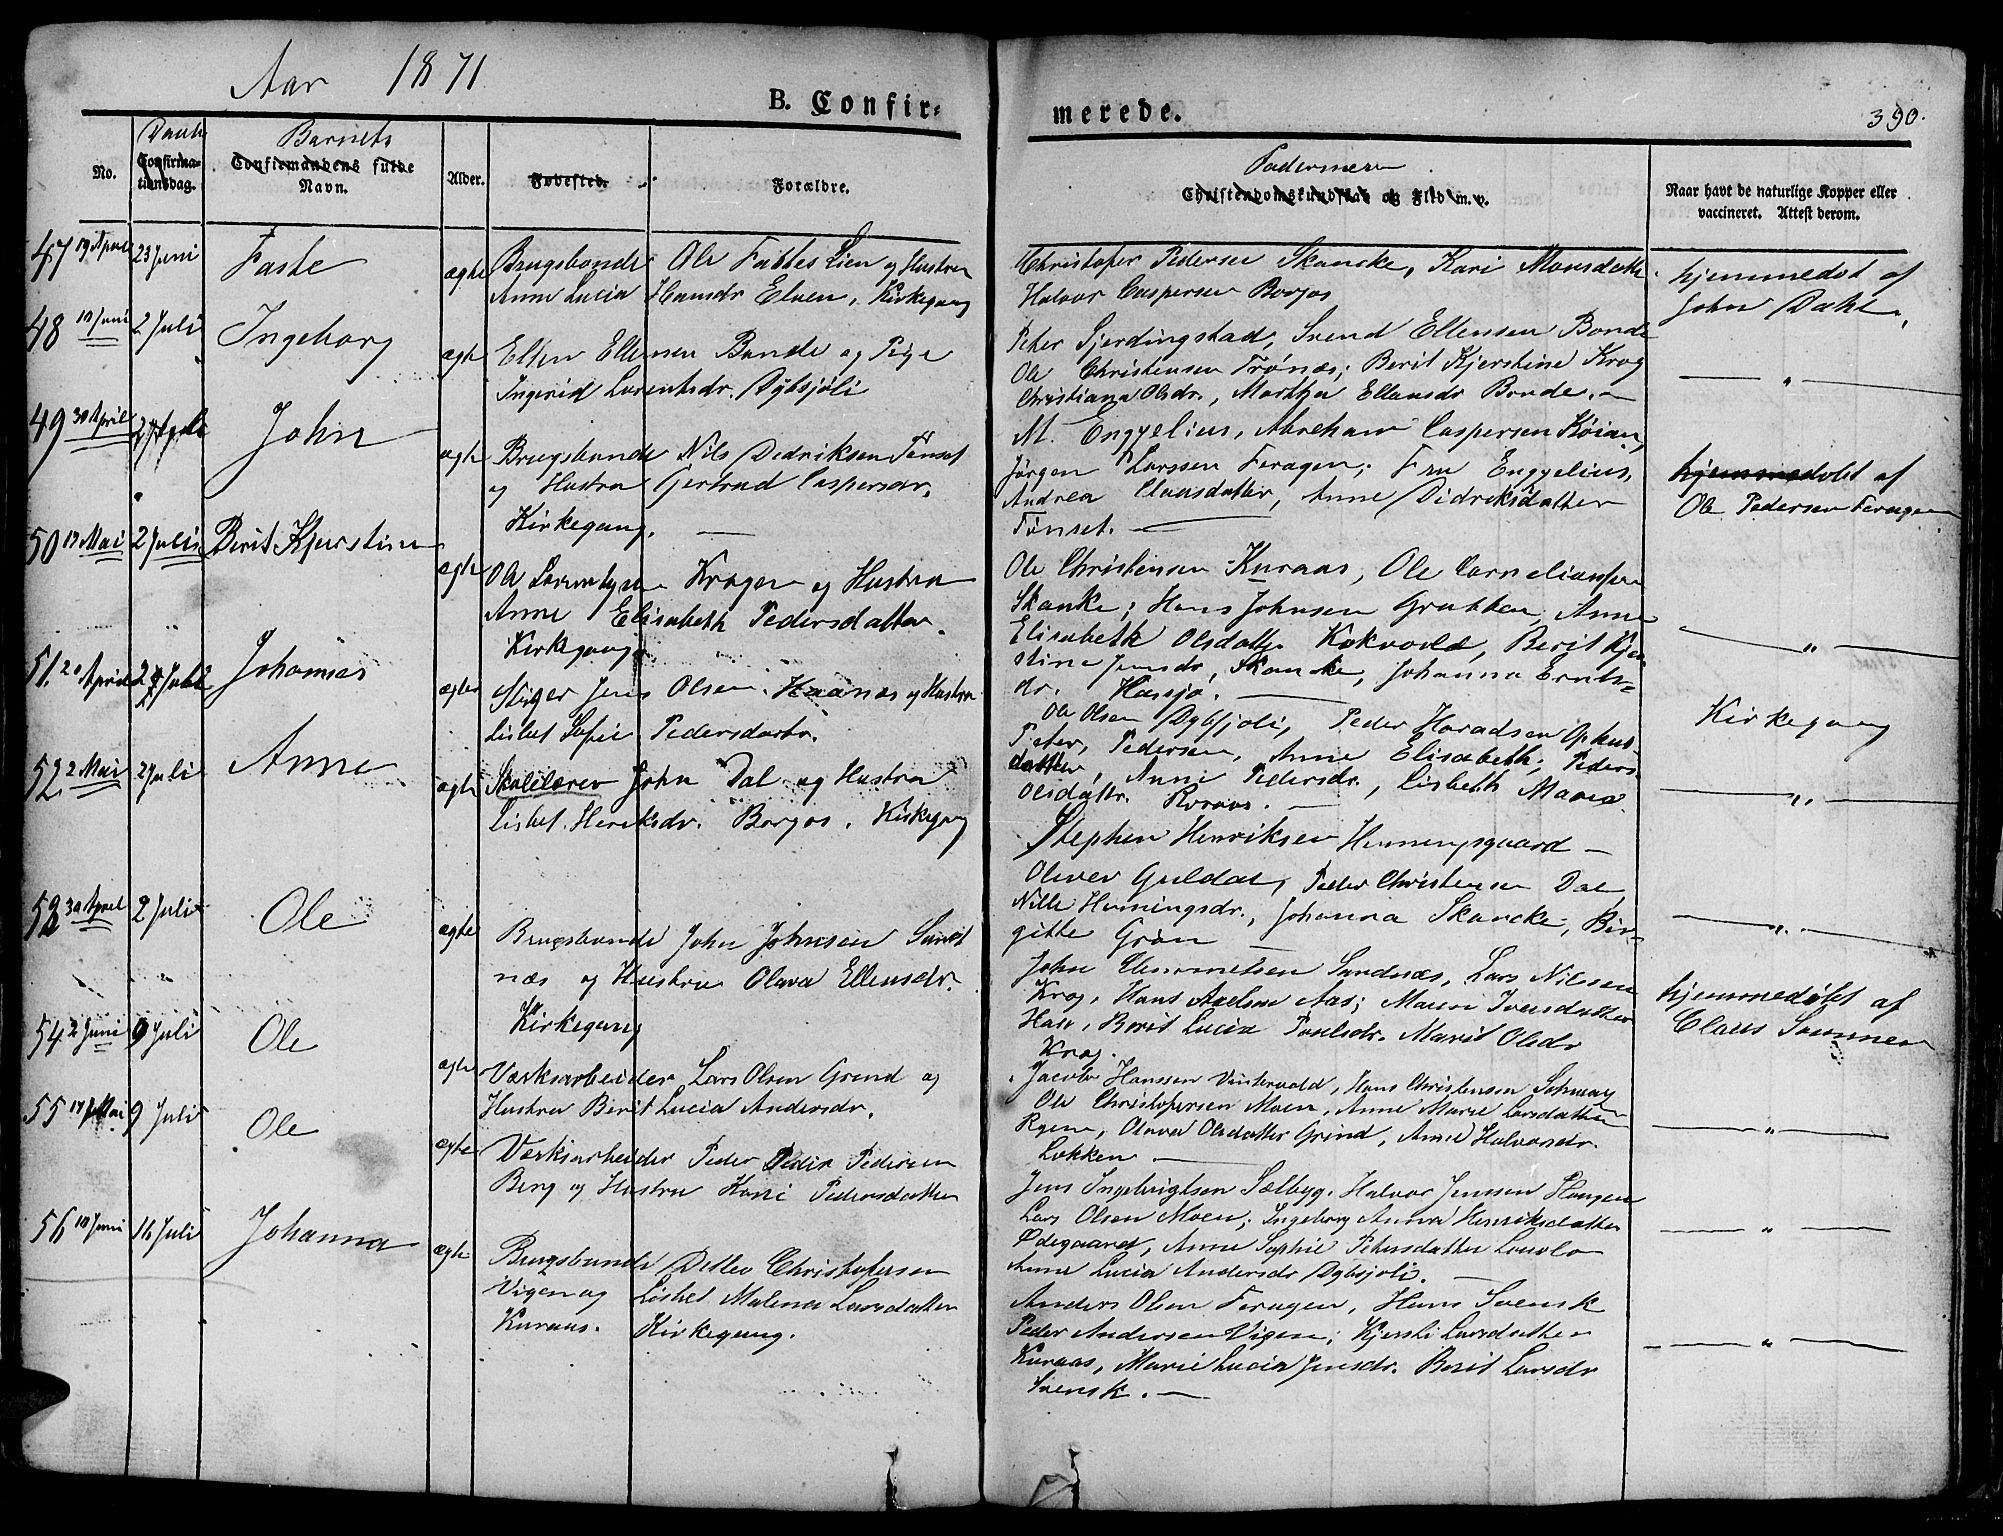 Aar 1871
B. Confir-
merede.
390.
No.
Daab
Confirma-
tionsdag.
Barnets
Confirmandens fulde
Navn.
Alder.
Fødested.
Forældre.
Faderne
Christendomskundskab og Flid m.v.
Naar havt de naturlige Kopper eller
vaccineret. Attest derom.
47 19 April 23 Juni Faste ægte Brugsbonde Ole Fastes Lien og Hustru
Anne Lucia Hansdr Elven, Kirkegang
Christofer Pedersen Skancke, Kari Monsdatter
Halvor Caspersen Borgos
hjemmedøbt af
John Dahl
48 Juni 2 Juli Ingeborg ægte Ellen Ellensen Bonde og Pige
Ingerid Larentsdr. Dybsjøli
Peter Gjerdingstad, Svend Ellensen Bonde
Ole Christensen Trønæs; Berit Kjerstine Krog
Christiana Olsdr., Marthe Ellensdr Bonde.
"
49 30 April 2 Juli John ægte Brugsbonde Nils Didriksen Tønset
og Hustru Gertrud Caspersdr.
Kirkegang.
M. Engzelius, Abraham Caspersen Køian,
Jørgen Larssen Feragen; Fru Engzelius,
Andrea Claasdatter, Anne Didriksdatter
Tønset.
hjemmedøbt af
Ole Pedersen Feragen
50 19 Mai 2 Juli Berit Kjerstine ægte Ole Larentzen Krogen og Hustru
Anne Elisabeth Pedersdatter.
Kirkegang
Ole Christensen Kuraas, Ole Corneliussen
Skanke; Hans Johnsen Grubben, Anne
Elisabeth Olsdatter Kokvold, Berit Kjer-
stine Jensdr, Skancke, Johanna Ernts-
dr. Hassjø.
"
51. 20 April 2 Juli Johannes ægte Stiger Jens Olsen Haanæs og Hustru
Lisbet Sofie Pedersdatr.
Ole Olsen Dybsjøli, Peder Haradsen Ophus
Peter Pedersen, Anne Elisabeth Peders-
datter, Anne Pedersdr., Lisbeth Maria
Olsdattr. Kuraas.
Kirkegang
52. 2 Mai 2 Juli Anne ægte Skolelærer John Dal og Hustru
Lisbet Henriksdr. Borgos. Kirkegang
Stephen Henriksen Henningsgaard
Oliver Guldal, Peder Christensen Dal
Nille Hemingsdr., Johanna Skancke, Bir-
gitte Grøn
"
53 30 April 2 Juli Ole ægte Brugsbonde John Johnsen Sand-
næs og Hustru Olava Ellensdr.
Kirkegang
John Clemmetsen Sandnæs, Lars Nilsen
Krog, Hans Axelsen Aas; Maren Iversdatter
Haae, Berit Lucia Poulsdr. Marit Olsdr
Krog.
"
hjemmedøbt af
Claus Sommer
54 2 Juni 9 Juli Ole ægte Værksarbeider Lars Olsen Grind og
Hustru Berit Lucia Andersdr.
Jacob Hanssen Vintervold, Hans Christensen
Ole Christofersen Moen, Anne Marie Larsdatter
Ryene, Olava Olsdatter Grind, Anne Halvorsdr.
Løkken
"
55 14 Mai 9 Juli Ole ægte Værksarbeider Peder Peder Pedersen
Berg og Hustru Kari Pedersdatter
Jens Ingebrigtsen Sælbyg. Halvor Jenssen Haugen
Lars Olsen Moen; Ingeborg Anna Henriksdatter
Ødegaard, Anne Sophie Petersdatter
Anne Lucia Andersdr Dybsjøli.
"
56 10 Juni 16 Juli Johanna ægte Brugsbonde Ditlev Christofersen
Vigen og Lisbet Malena Larsdatter
Kuraas. Kirkegang.
Anders Olsen Feragen, Hans Svensk
Peder Andersen Vigen; Kjersti Larsdatter
Kuraas, Marie Lucia Jensdr. Berit Larsdr
Svensk.
"